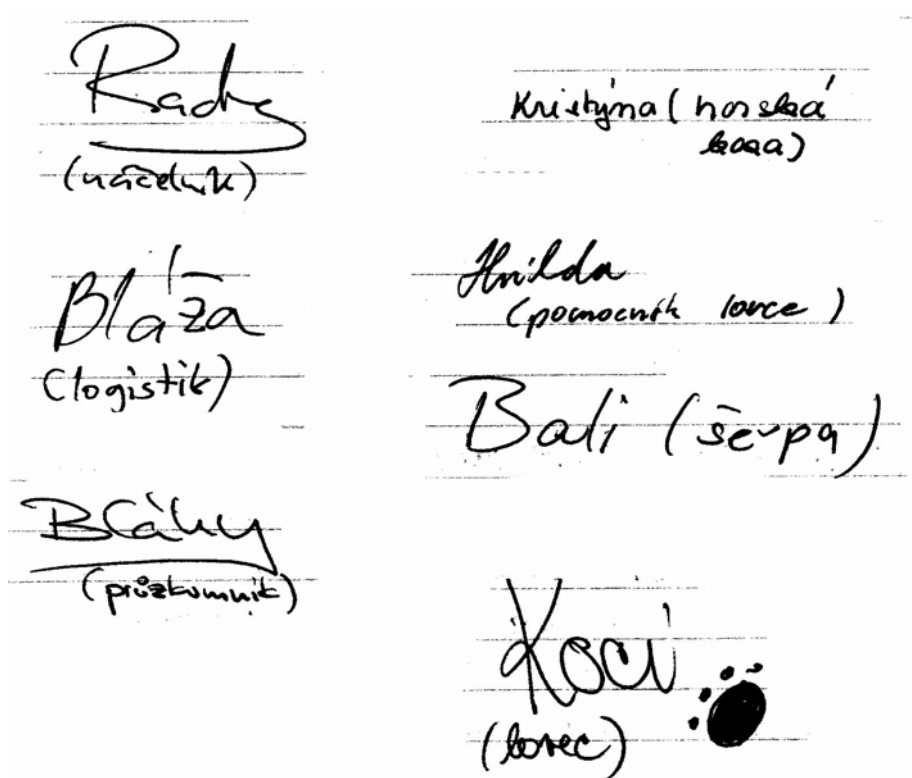 Radky
(náčelník)
Bláža
(logistik)
Bláhy
(průzkumník)
Kristýna (horská
koza)
Hnilda
(pomocník lovce)
Bali (šerpa)
Kocí
(lovec)